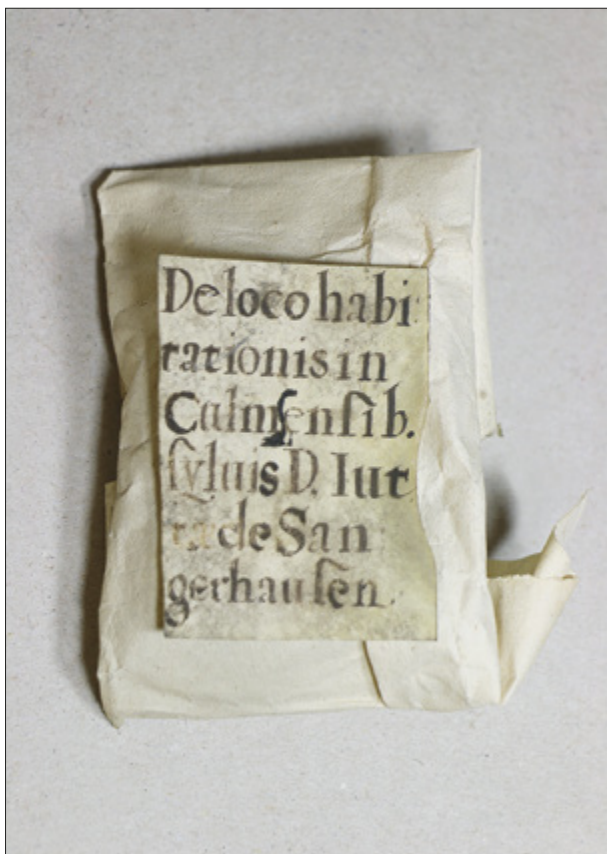 De loco habi:
tationis in
Culmensib.
syluis D. Iut
ta de San
gerhausen.